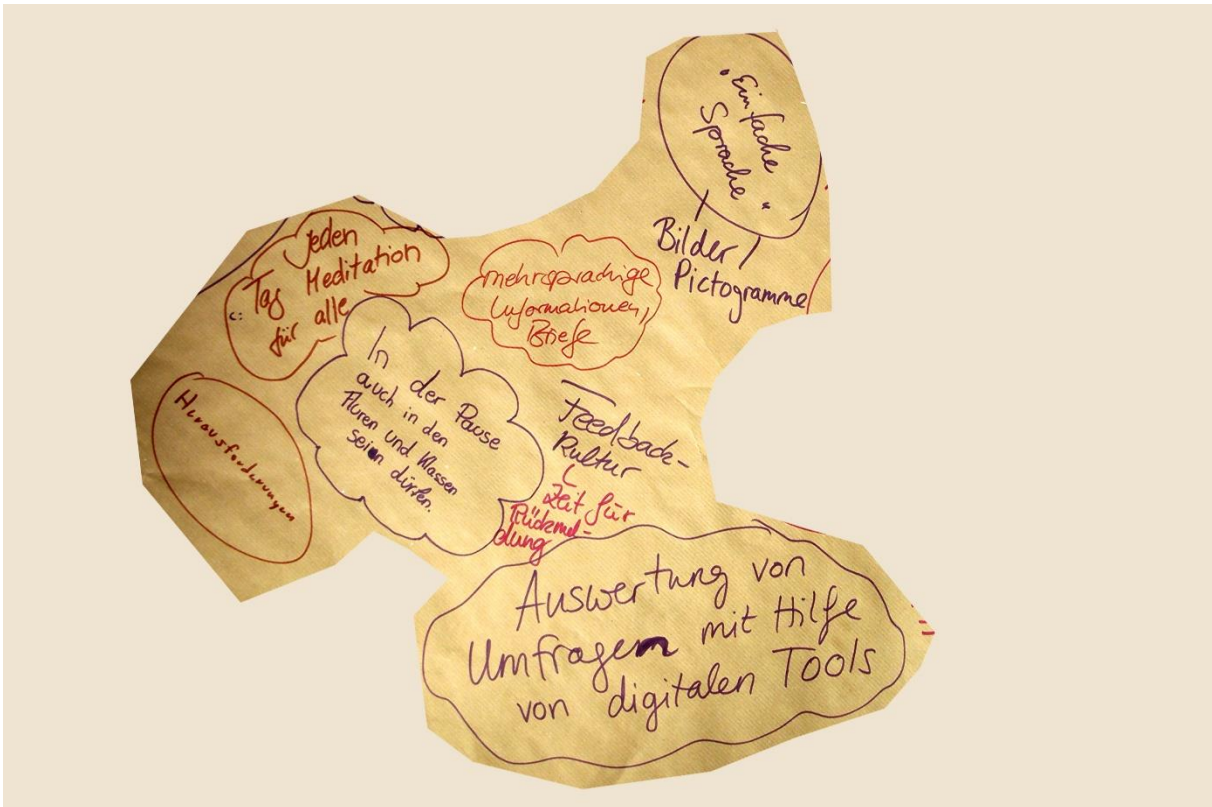 „Einfache
Sprache“
Bilder/
Pictogramme
jeden
Tag Meditation
für alle
mehrsprachige
Informationen,
Briefe
In der Pause
auch in den
Fluren und Klassen
seien dürfen.
Herausforderungen
Feedback-
Kultur
Zeit für
Rückmel-
dung
Auswertung von
Umfragen mit Hilfe
von digitalen Tools